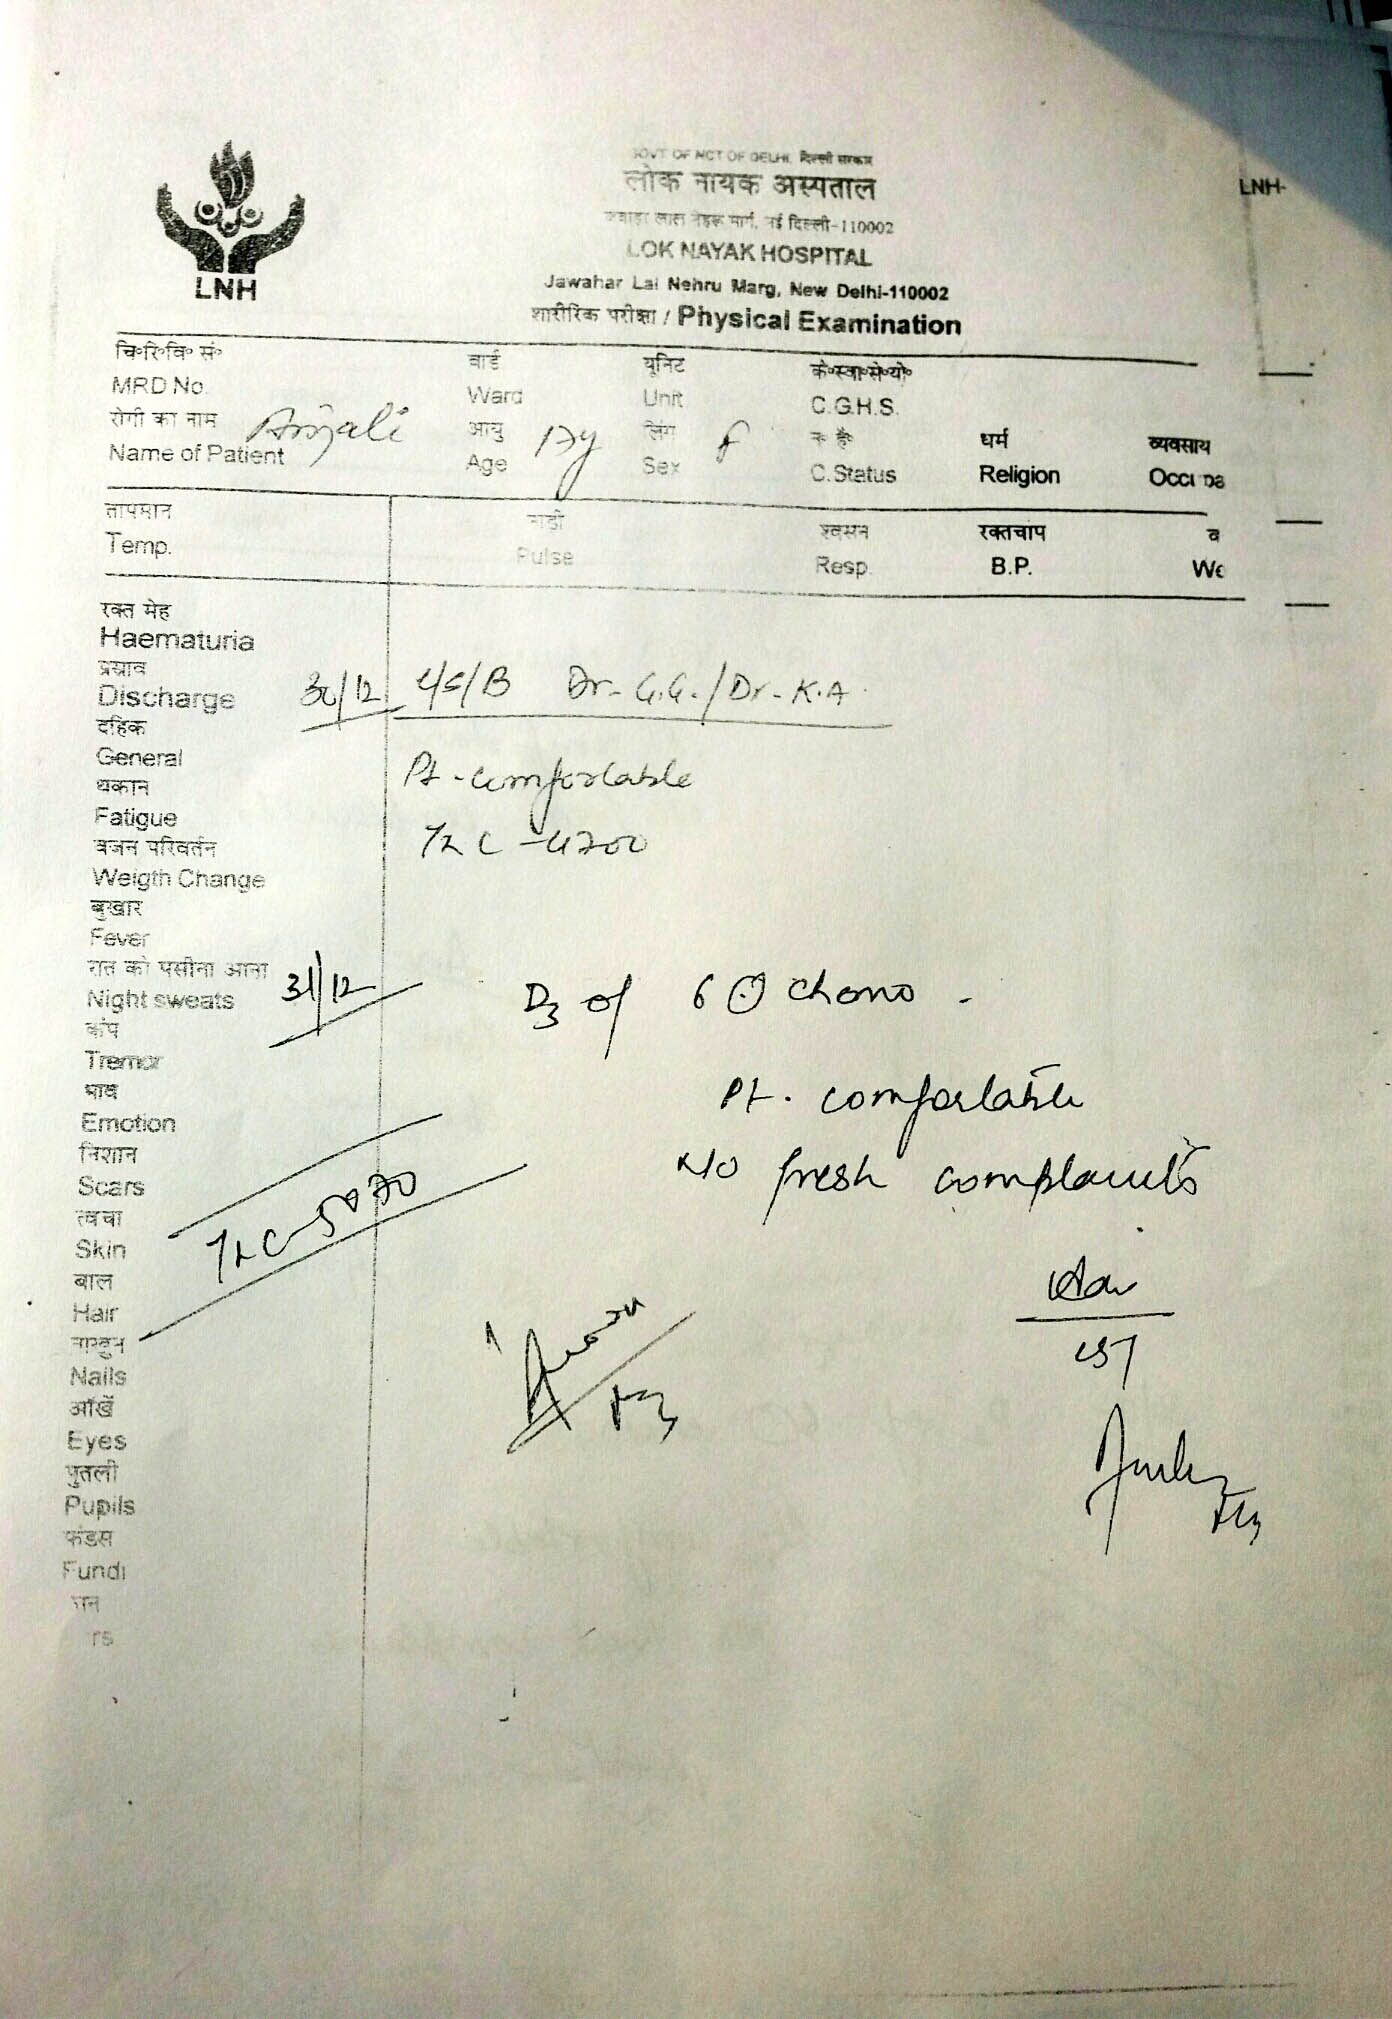 GOVT OF NCT OF DELHI, दिल्ली सरकार
लोक नायक अस्पताल
जवाहर लाल नेहरू मार्ग, नई दिल्ली-110002
LOK NAYAK HOSPITAL
Jawahar Lal Nehru Marg, New Delhi-110002
शारीरिक परीक्षा / Physical Examination
LNH
LNH-
चि॰रि॰वि॰ सं॰ वार्ड यूनिट के॰स्वा॰से॰यो॰
MRD No. Ward Unit C.G.H.S.
रोगी का नाम Anjali आयु 17y लिंग F धर्म व्यवसाय
Name of Patient Age Sex C.Status Religion
तापमान नाड़ी श्वसन रक्तचाप व
Temp. Pulse Resp. B.P. We
रक्त मेह
Haematuria
प्रस्राव
Discharge 30/12 Dr. G.G./Dr. K.A.
दहिक
General Pt - comfortable
थकान
Fatigue TLC - 4700
वजन परिवर्तन
Weigth Change
बुखार
Fever
रात को पसीना आना
Night sweats 31/12 D3 of 6 chemo -
कंप
Tremor
भाव
Emotion Pt. comfortable
निशान
Scars No fresh complaints
त्वचा
Skin TLC-5070
बाल
Hair
नाखुन
Nails
आँखें
Eyes
पुतली
Pupils
फंडस
Fundi
rs